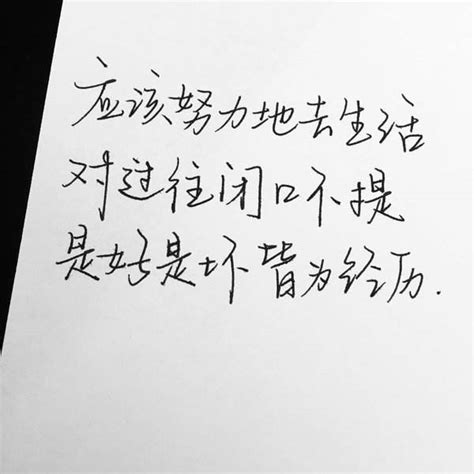 应该努力地去生活
对过往闭口不提
是好是坏皆为经历.